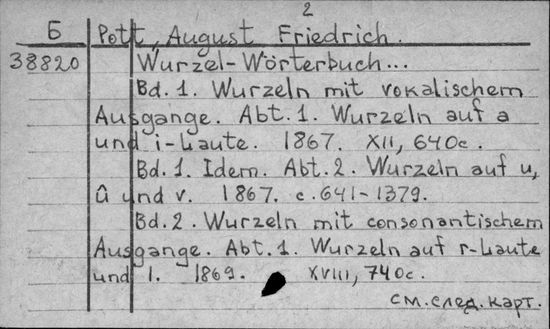 2
Б Pott, August Friedrich.
38820 Wurzel-Wörterbuch...
Bd. 1. Wurzeln mit vokalischem
Ausgange. Abt. 1. Wurzeln auf a
und i-Laute. 1867. XII, 640c.
Bd. 1. Idem. Abt. 2. Wurzeln auf u,
û und v. 1867. c. 641-1379.
Bd. 2. Wurzeln mit consonantischem
Ausgange. Abt. 1. Wurzeln auf r-Laute
und l. 1869. XVIII, 740c.
см. след. карт.